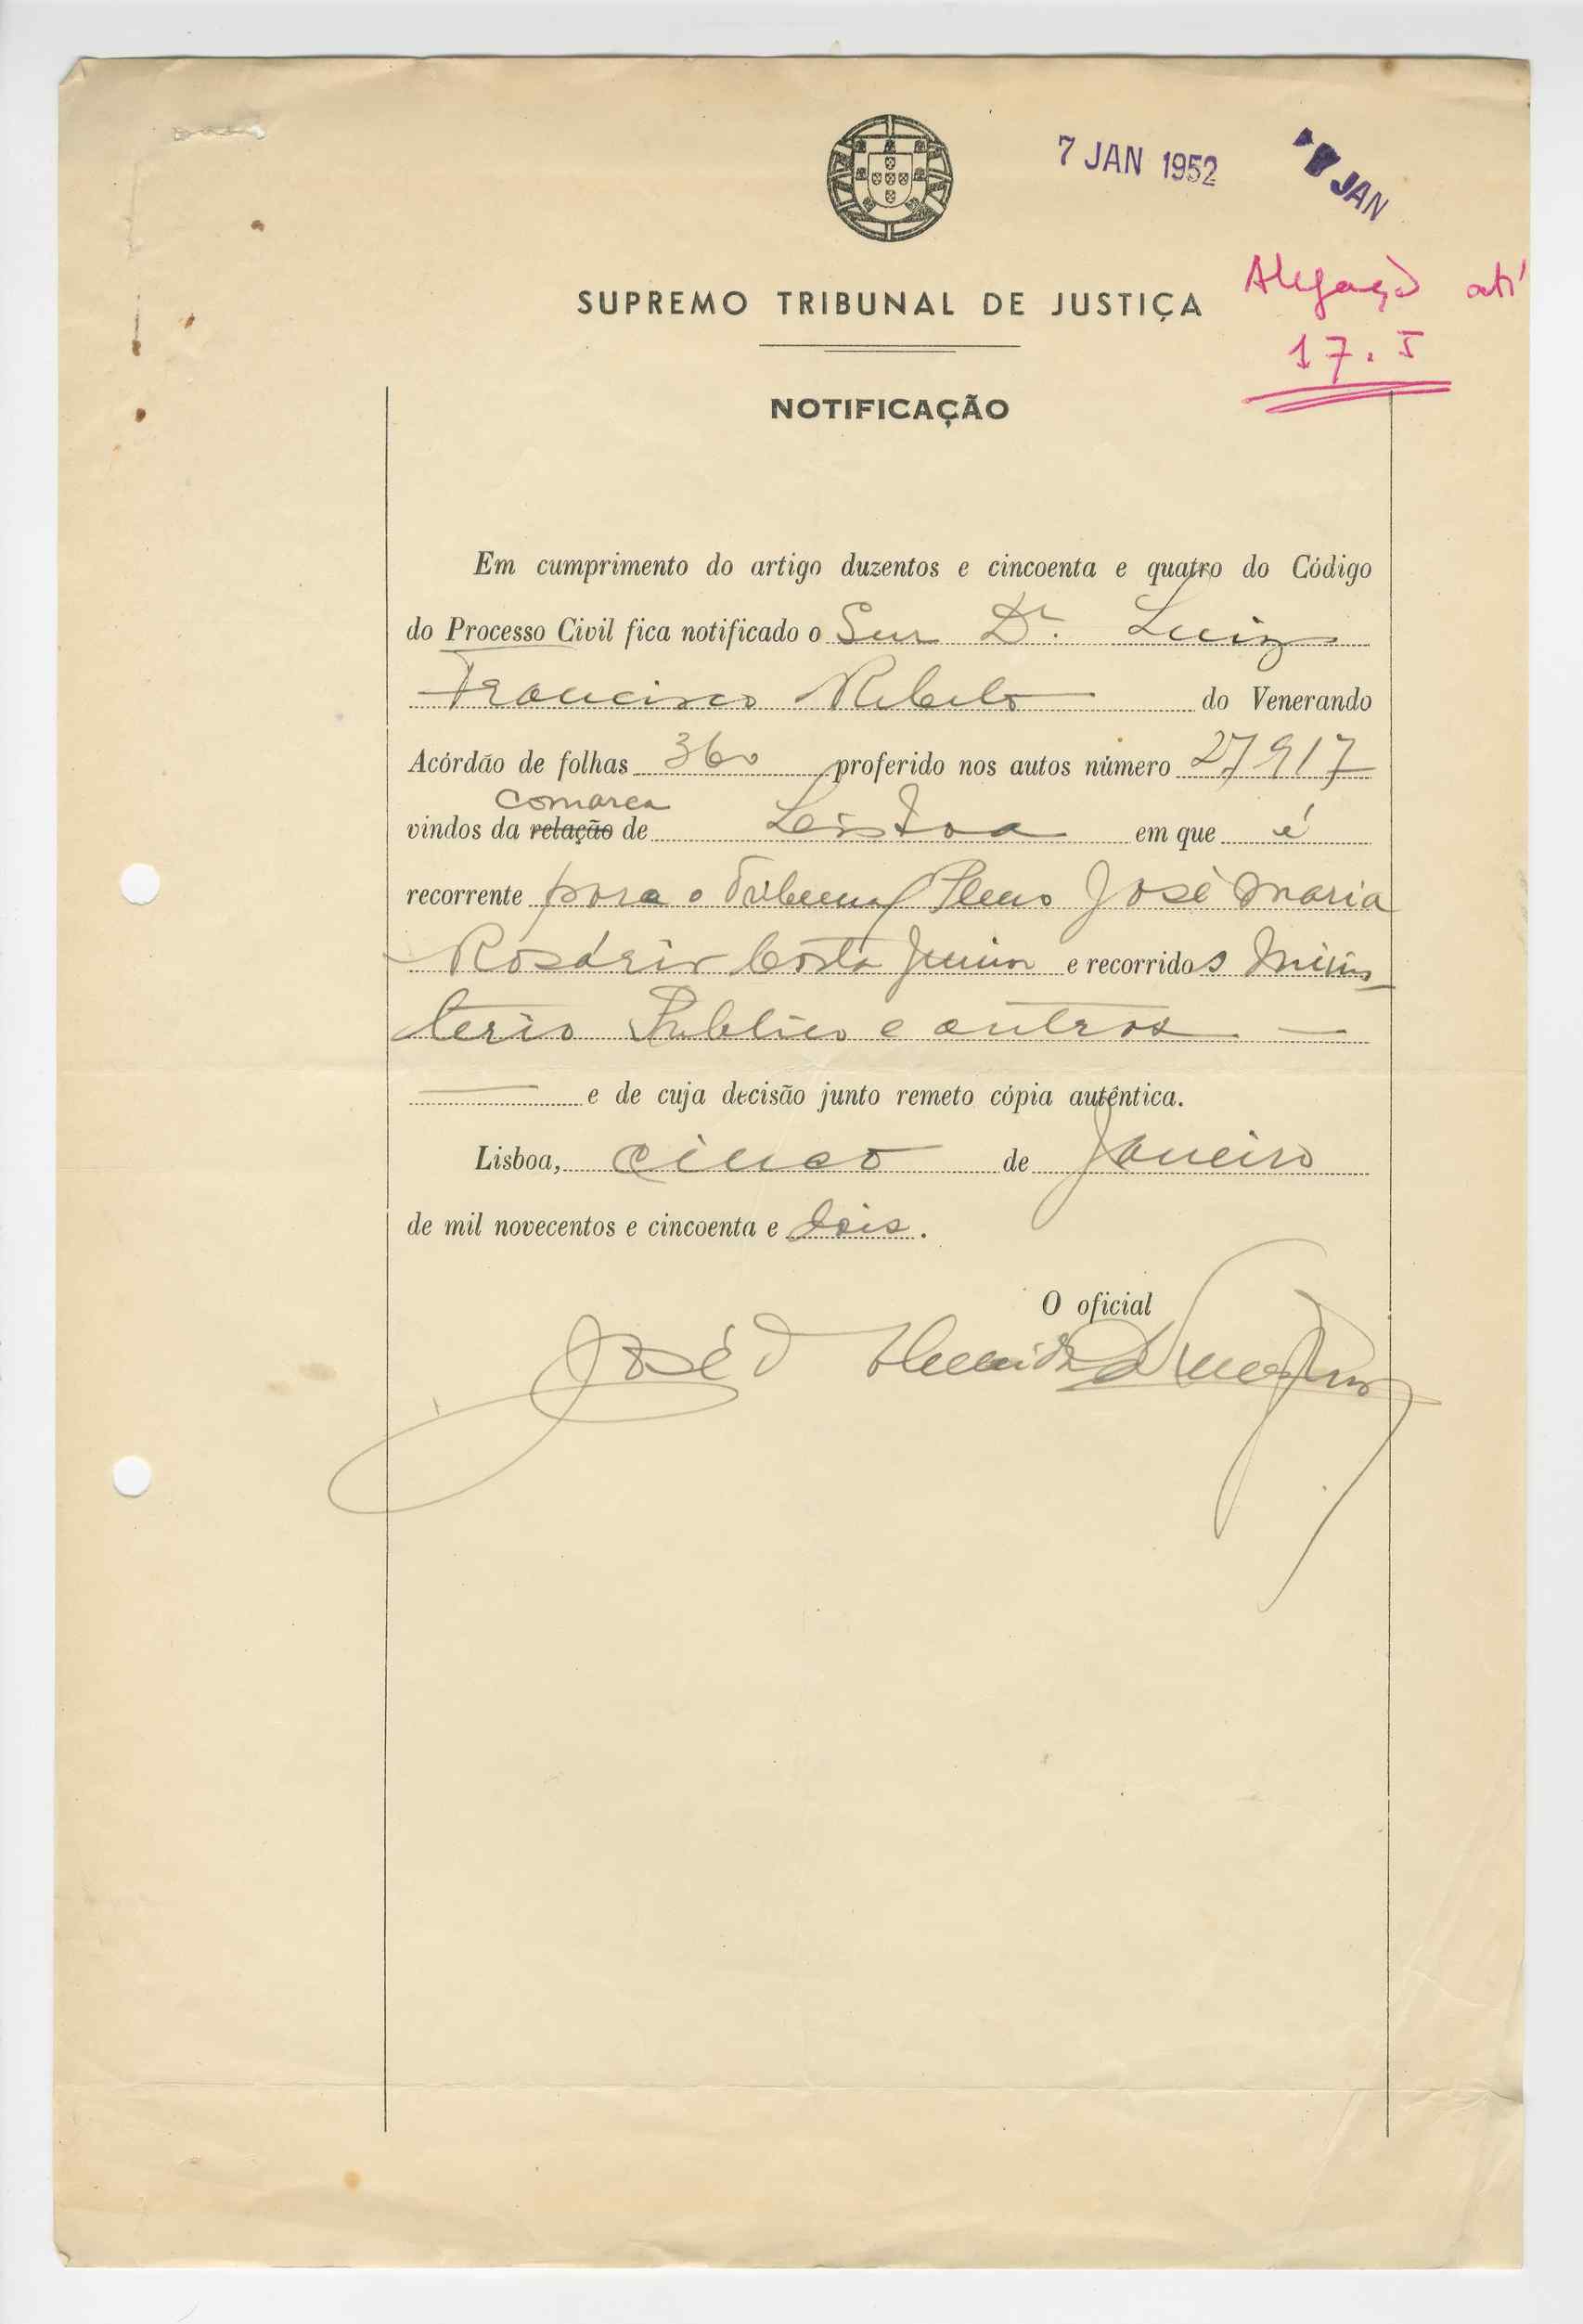 7 JAN 1952
JAN
Alegação até
17. I
SUPREMO TRIBUNAL DE JUSTIÇA
NOTIFICAÇÃO
Em cumprimento do artigo duzentos e cincoenta e quatro do Código
do Processo Civil fica notificado o Snr Dr. Luiz
Francisco Rebelo do Venerando
Acórdão de folhas 360 proferido nos autos número 27917
comarca
vindos da relação de Lisboa em que é
recorrente para o Tribunal Pleno José Maria
Rosário Costa Junior e recorridos Minis-
terio Publico e outros —
— e de cuja decisão junto remeto cópia autêntica.
Lisboa, cinco de Janeiro
de mil novecentos e cincoenta e dois.
O oficial
José d'Almeida